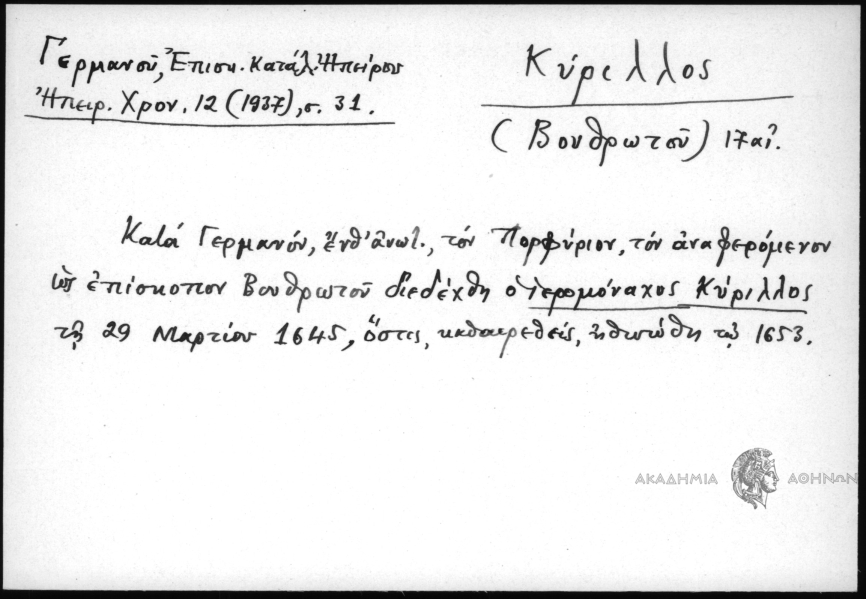 Γερμανοῦ, Ἐπισκ. κατάλ. Ἠπείρου
Ἠπειρ. Χρον. 12 (1937), σ. 31.
Κύριλλος
(Βουθρωτοῦ) 17 αἰ.
Κατά Γερμανόν, ἔνθ' ἀνωτ., τόν Πορφύριον, τόν ἀναφερόμενον
ὡς ἐπίσκοπον Βουθρωτοῦ διεδέχθη ὁ ἱερομόναχος Κύριλλος
τῇ 29 Μαρτίου 1645, ὅστις, καθαιρεθείς, ἠθωώθη τῷ 1653.
ΑΚΑΔΗΜΙΑ ΑΘΗΝΩΝ